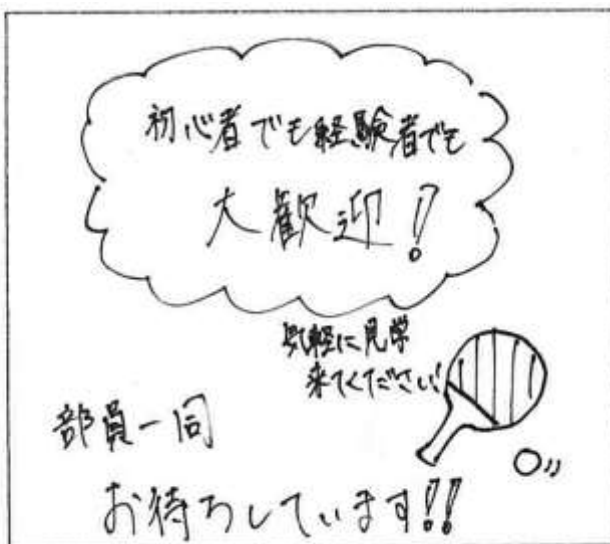 初心者でも経験者でも
大歓迎!
気軽に見学
来てください!
部員一同
お待ちしています!!